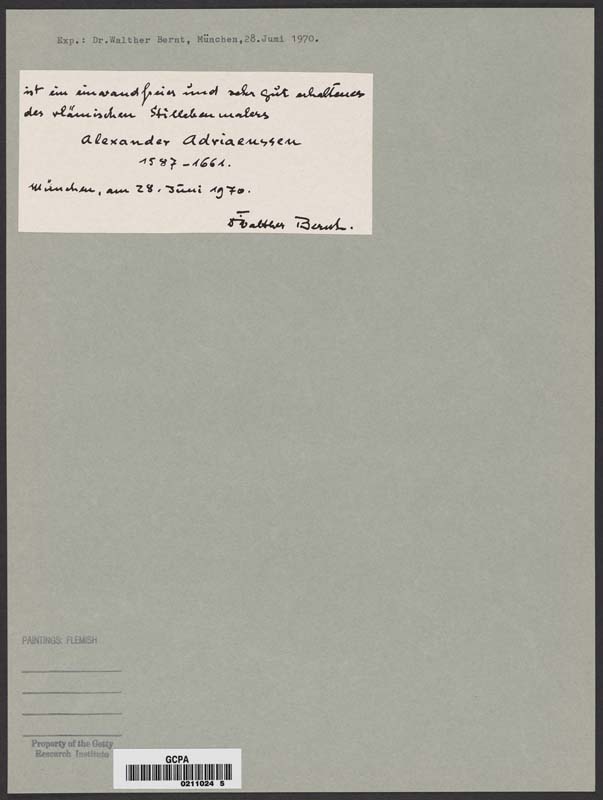 Exp.: Dr.Walther Bernt, München,28.Juni 1970.
ist ein einwandfreier und sehr gut erhaltenes
des vlämischen Stillebenmalers
Alexander Adriaenssen
1587-1661.
München, am 28. Juni 1970.
Dr Walther Bernt.
PAINTINGS: FLEMISH
Property of the Getty
Research Institute
GCPA
0211024 5